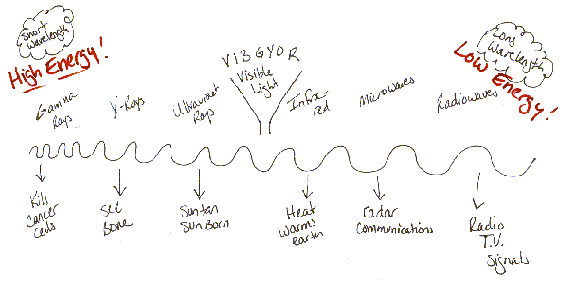 Short
Wavelength
High Energy!
Long
Wavelength
Low Energy!
VIBGYOR
Visible
Light
Gamma
Rays
X-Rays
Ultraviolet
Rays
Infra
red
Microwaves
Radiowaves
Kill
Cancer
Cells
See
Bone
Suntan
Sunburn
Heat
Warms
earth
Radar
Communications
Radio
T.V.
Signals